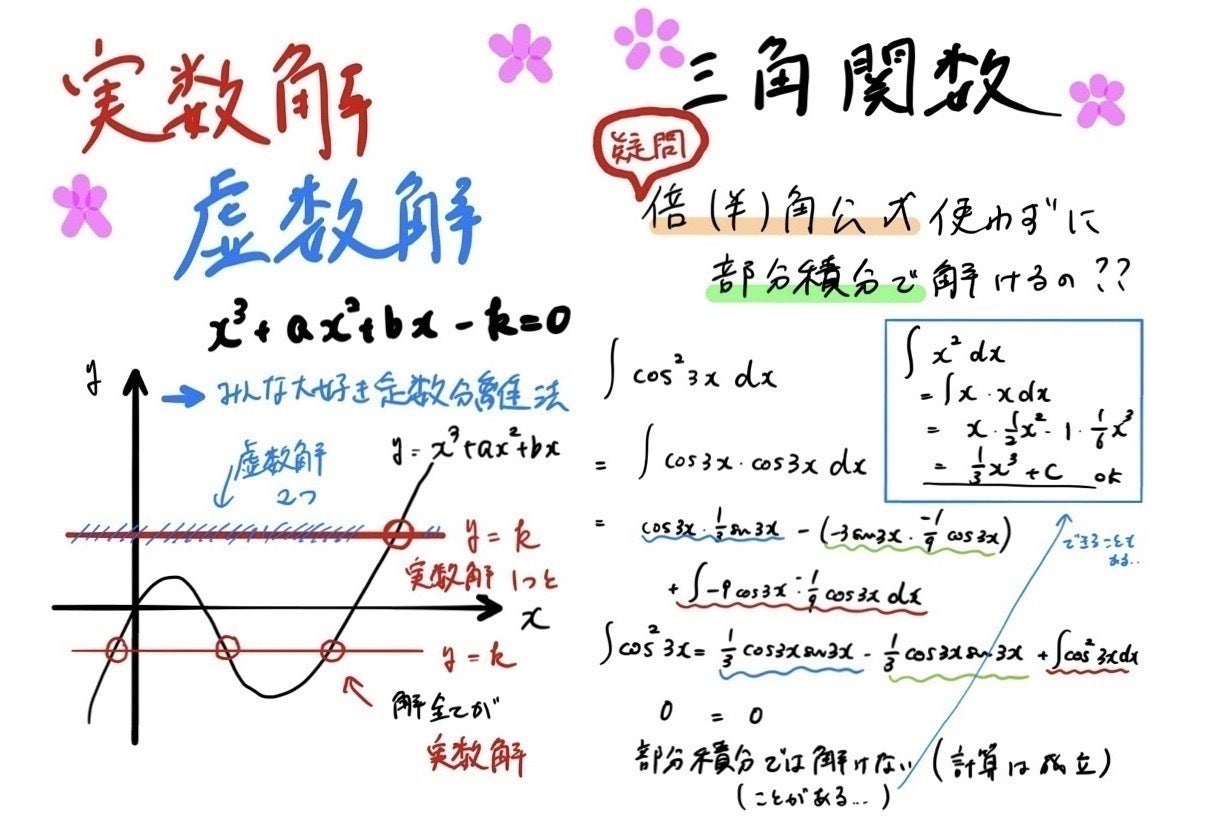 実数解
虚数解
x³+ax²+bx-k=0
→ みんな大好き定数分離法
y
虚数解
2つ
y=x³+ax²+bx
y=k
実数解 1つと
x
y=k
解全てが
実数解
三角関数
疑問
倍(半)角公式使わずに
部分積分で解けるの??
∫cos²3x dx
= ∫cos3x・cos3x dx
= cos3x・1/3 sin3x - (-3sin3x・-1/9 cos3x)
+ ∫-9cos3x・-1/9 cos3x dx
∫cos²3x = 1/3 cos3x sin3x - 1/3 cos3x sin3x + ∫cos²3x dx
0 = 0
部分積分では解けない (計算は成立)
(ことがある...)
∫x² dx
= ∫x・x dx
= x・1/2 x² - 1・1/6 x³
= 1/3 x³ + C ok
できることも
ある..